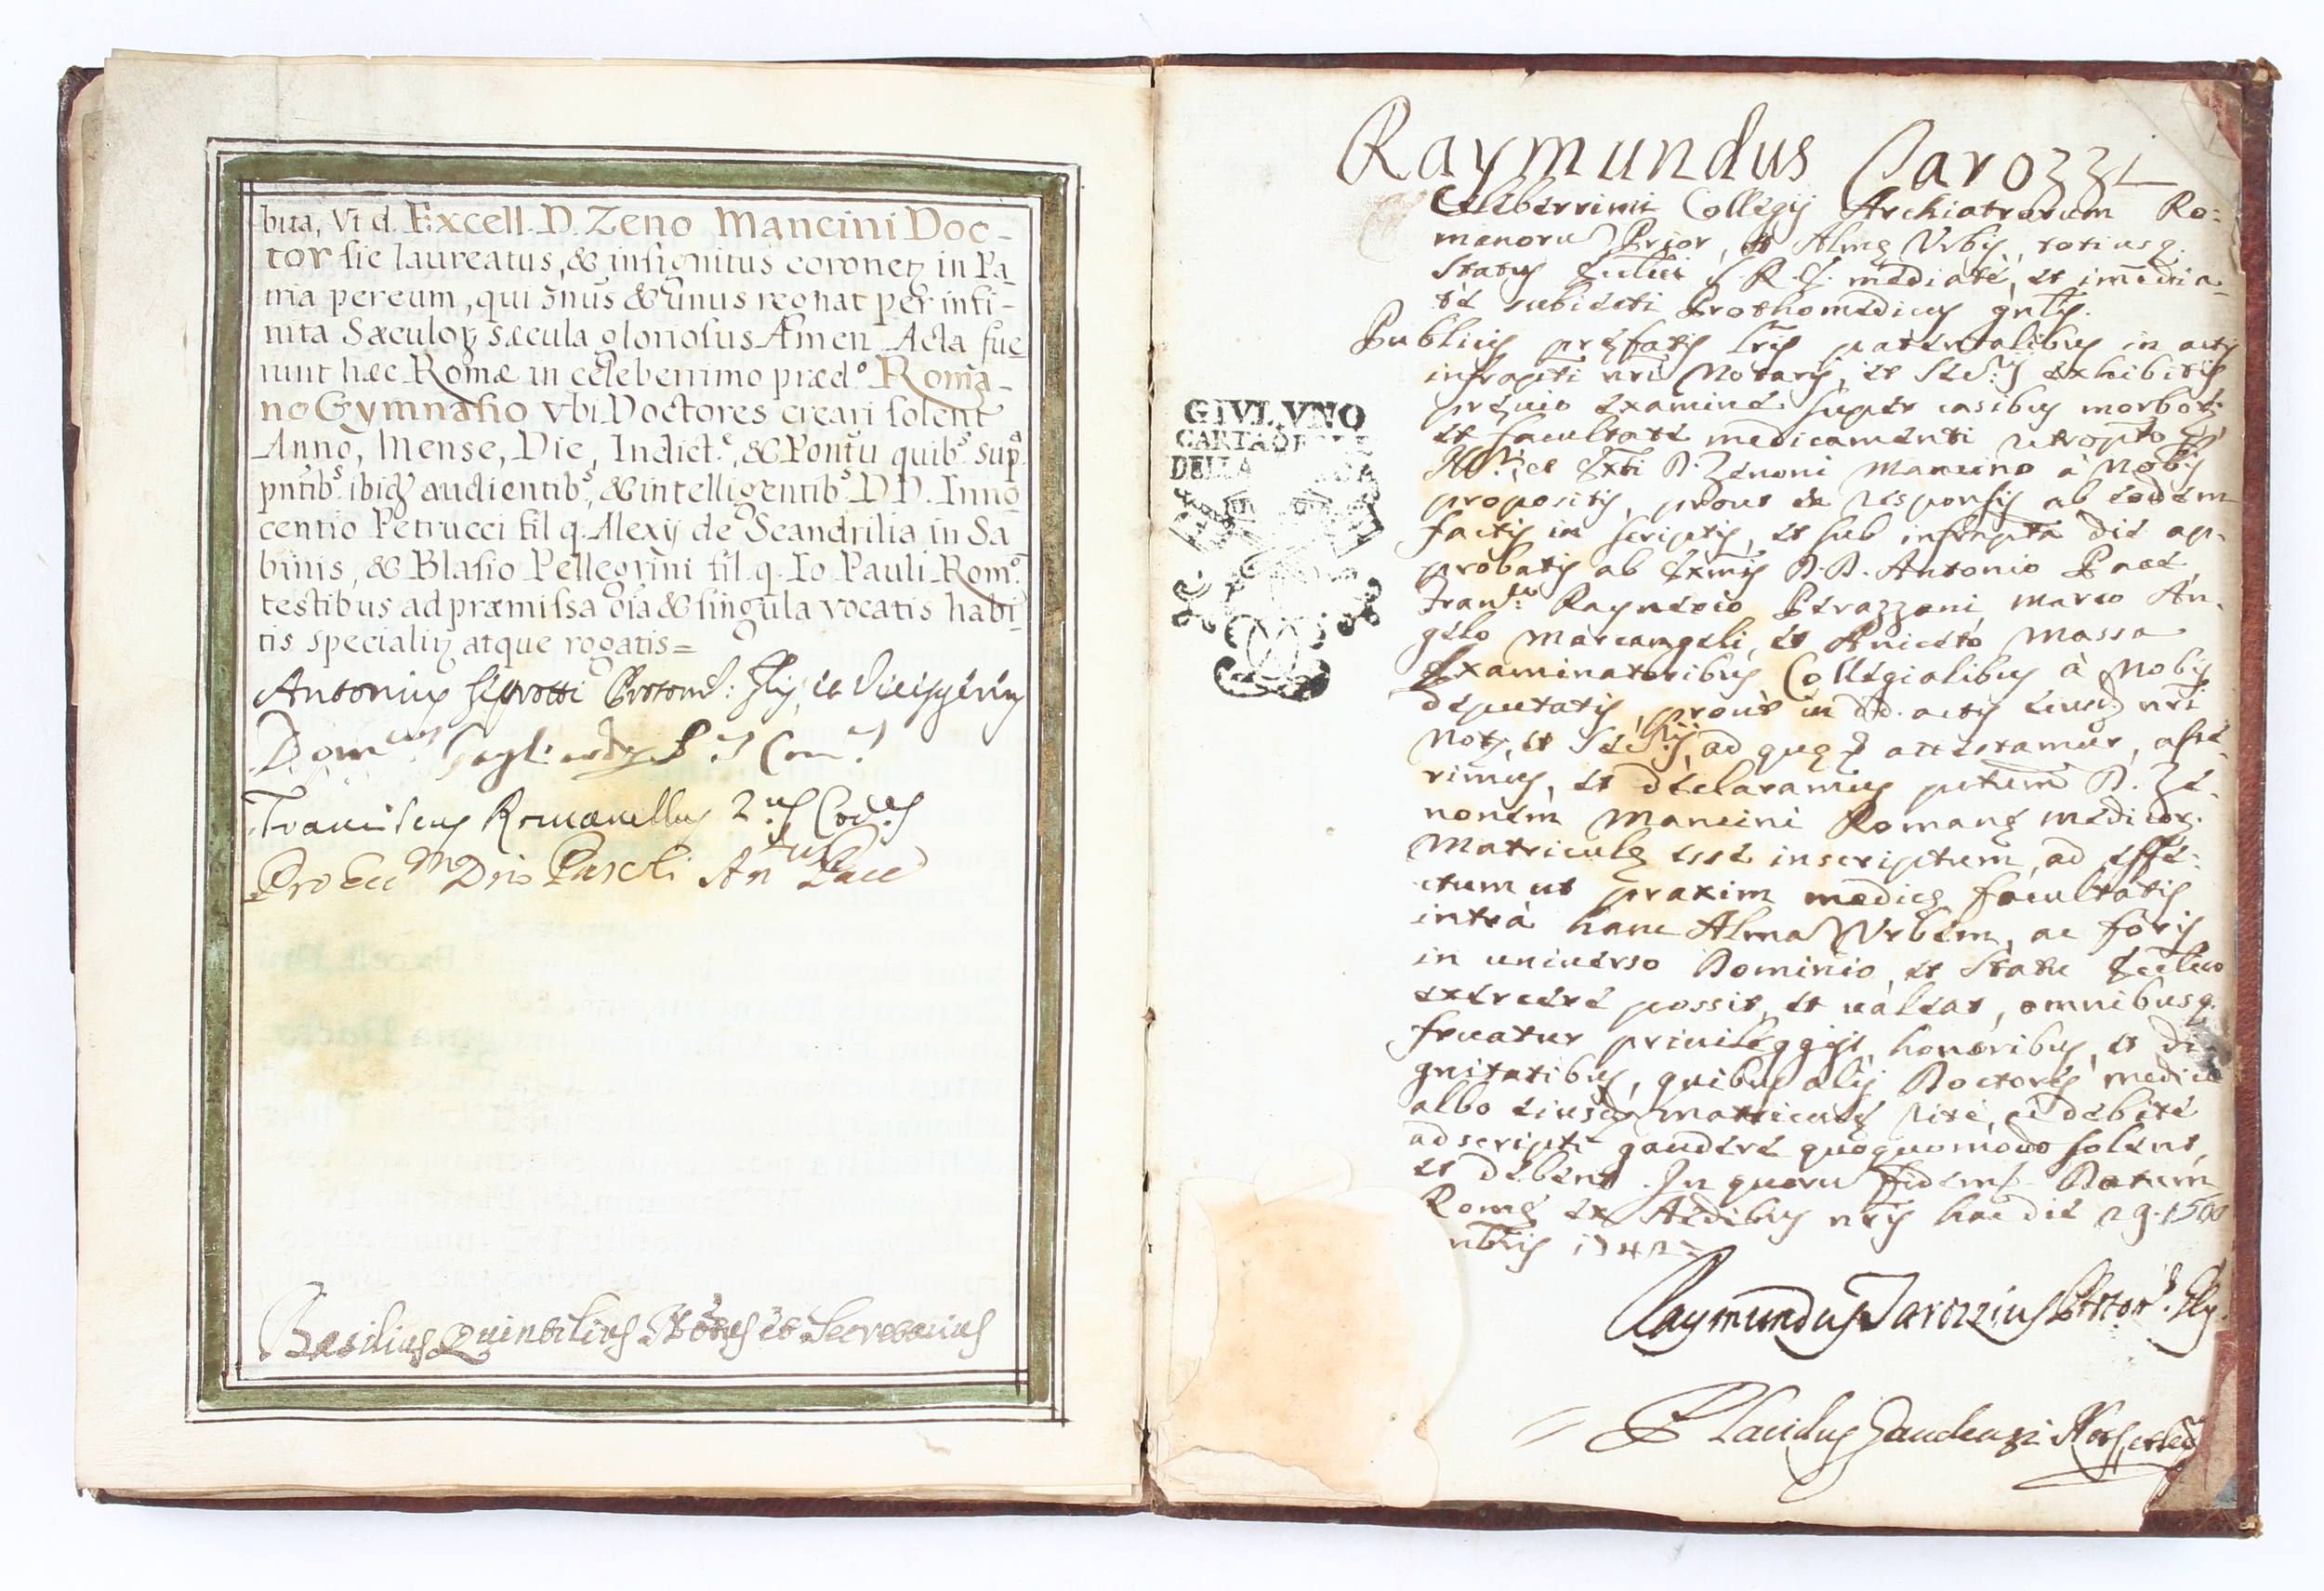 bita, Vt d. Excell. D. Zeno Mancini Doc-
tor sic laureatus, & insignitus coronetꝫ in Pa
tria per eum, qui Trinus & Unus regnat per infi-
nita Sæculoꝝ sæcula gloriosus Amen Acta fue
runt hæc Romæ in celeberrimo præd.º Roma-
no Gymnasio vbi Doctores creari solent
Anno, Mense, Die, Indict.e, & Pontu quib.s sup.a
pntib.s ibiđ audientib.s, & intelligentib.s D.D. Inno
centio Petrucci fil. q. Alexij de Scandrilia in Sa
binis, & Blasio Pellegrini fil. q. Io Pauli Rom.o
testibus ad præmissa oīa & singula vocatis habi-
tis specialitꝫ atque rogatis=
Antonius
Franciscus Romanellus 2.us
Pro Ecc.m Dno Pascoli An.tus Pace
Basilius Quintilius Notus et Secretarius
Raymundus Carozzi
Celeberrimi Collegij Archiatrorum Ro:
manorū Prior, et Almę Vrbis, totiusq.
Status S. R. E. mediatè, et im̄edia-
tè subiecti Prothomedicus gnlis.
Publicis pręfatis lris patentalibus in actis
infrapti nri Notarij, et exhibitis
pręuio examine super casibus morboꝝ
et facultate medicamenti
D. Zenoni Mancino à Nobis
propositis, prout ex responsis ab eodem
factis in scriptis, et sub infrapta die ap-
probatis ab D.D. Antonio Pace
Marco An-
gelo Marcangeli, et Aniceto Massa
Examinatoribus Collegialibus à Nobis
deputatis, prout in dd. actis eiusd nri
Not, et ad quę attestamur, asse-
rimus, et declaramus D. Ze-
nonem Mancini Romanę medicoꝝ
Matriculę esse inscriptum, ad effe-
ctum ut praxim medicę facultatis
intrà hanc Almā Vrbem, ac foris
in uniuerso Dominio, et Statu
exercere possit, et ualeat, omnibusq.
fruatur priuileggijs, honoribus, et di
gnitatibus, quibus alij Doctores medici
albo eiusd matriculę ritè, ac debitè
adscripti gaudere quoquomodo solent,
et debent. In quorū fidem Datum
Romę ex Ædibus nris hac die 29.
mbris 174
GIVL. VNO
CARTA
DELLA
Raymundus Carozzius
Placidus Gaudenzi